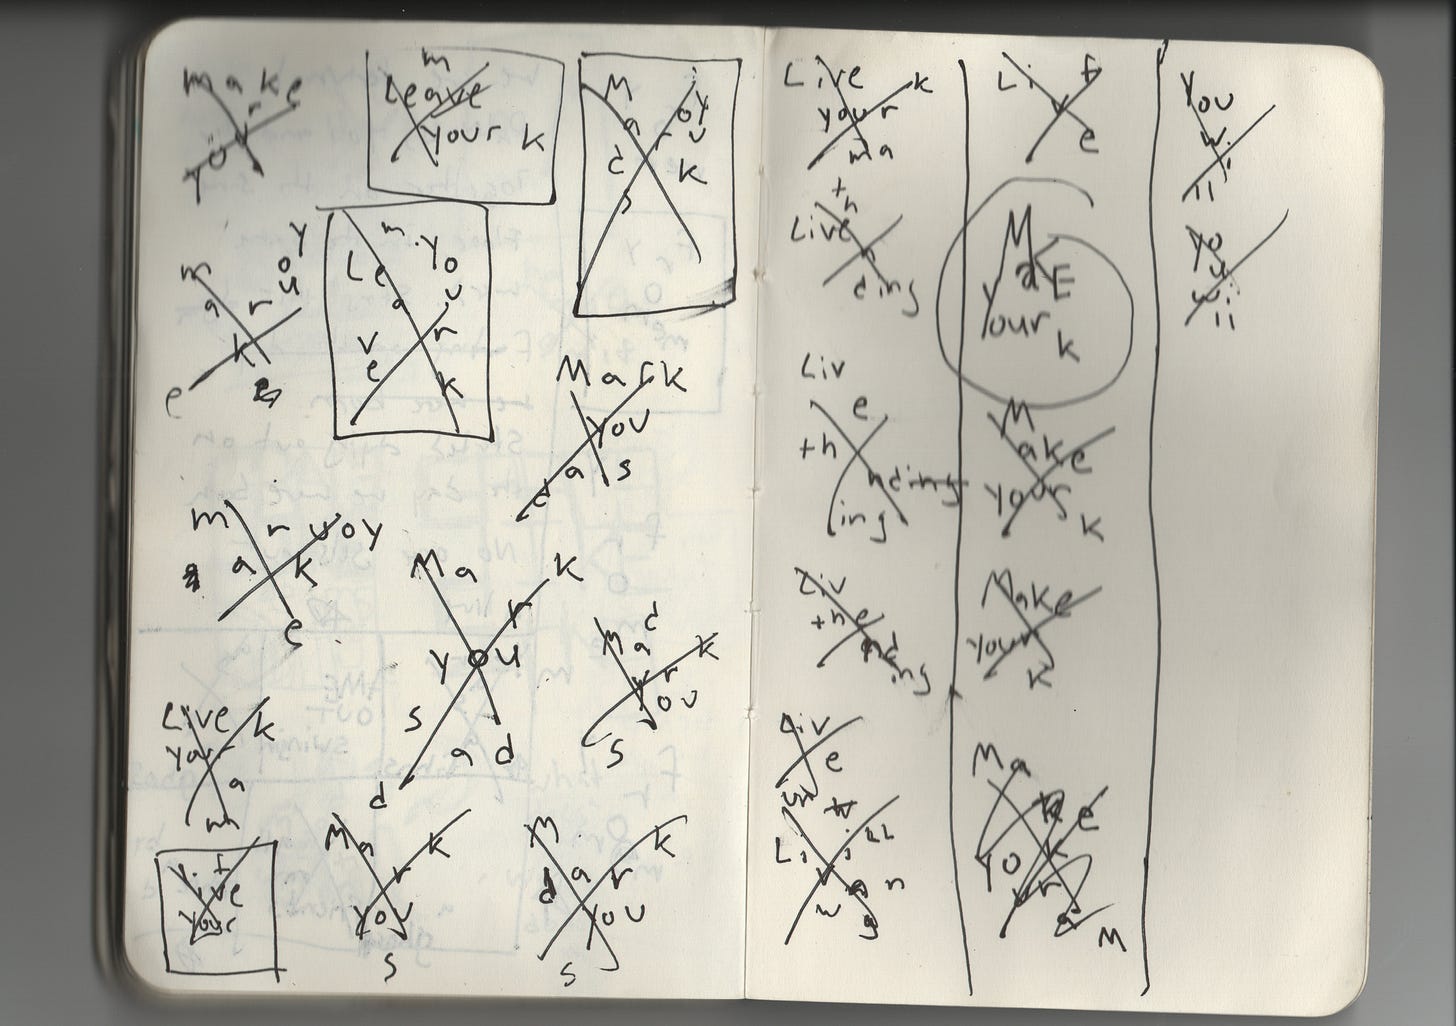 Make
r
you
m
Leave
your k
M
a
r
you
k
d
s
m
a
r
you
k
e
m
Leave
you
r
k
Mark
you
d a s
m
a
r uoy
k
e
Ma
r k
you
s
d a d
d
Mad
r k
you
s
Live k
your
a
m
f
ive
your
Ma
r k
you
s
M
d a r k
you
s
Live k
your
ma
th
Live
ding
Liv
e
th
nding
ing
Liv
the
nding
Liv
e
Li
v
ill
n
g
Li f
v
e
M
akE
your
k
M
ake
your
k
Make
your
k
Ma
k e
yo
ur
a
M
You
wi
ll
You
wi